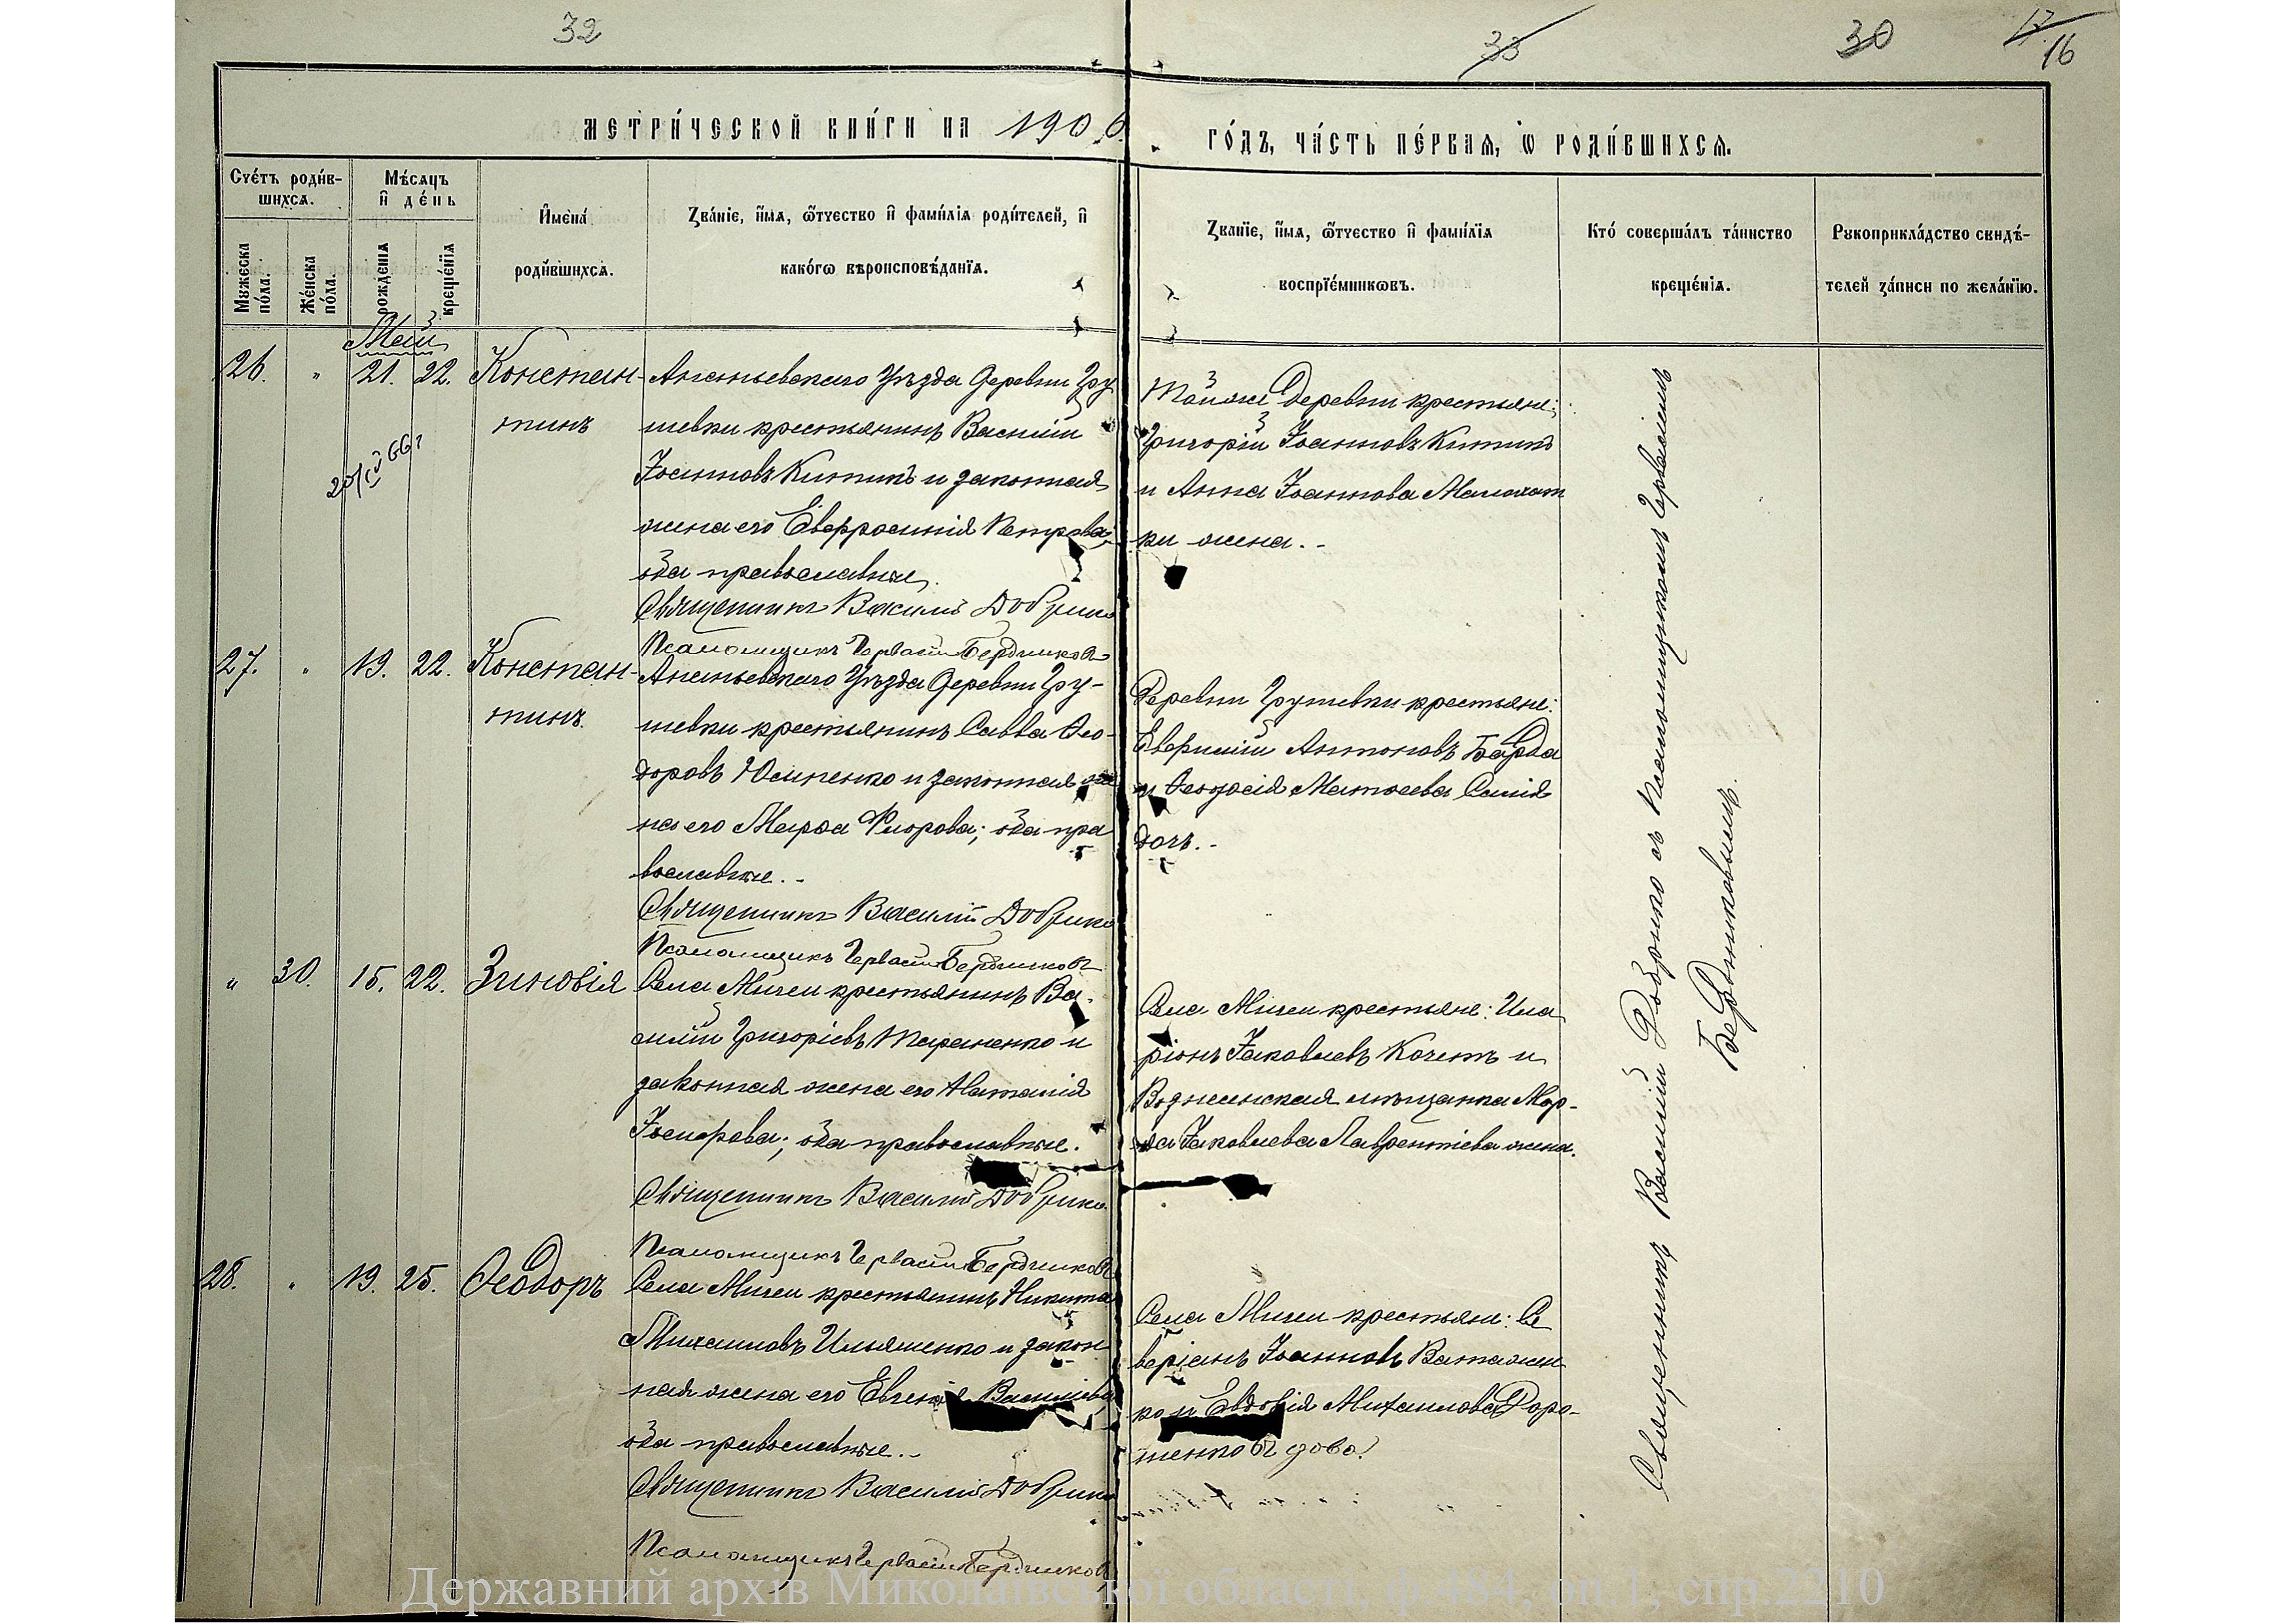 32
33
30
17
16
МЕТРИ́ЧЕСКОЙ КНИ́ГИ НА 1900
ГО́ДЪ, ЧА́СТЬ ПЕ́РВАѦ, Ѡ РОДИ́ВШИХСѦ.
Сче́тъ роди́в-
шихсѧ.
Мѣ́сѧцъ
и҆ де́нь
Мꙋжеска по́ла.
Же́нска по́ла.
рожде́нїѧ
креще́нїѧ
И҆мена́
роди́вшихсѧ.
Зва́нїе, и҆́мѧ, ѻ҆́тчество и҆ фами́лїѧ роди́телей, и҆
како́гѡ вѣроисповѣ́данїѧ.
Зва́нїе, и҆́мѧ, ѻ҆́тчество и҆ фами́лїѧ
воспрїе́мникѡвъ.
Кто́ соверша́лъ та́инство
креще́нїѧ.
Рꙋкоприкла́дство свидѣ́-
телей за́писи по жела́нїю.
Май
26. " 21. 22. Констан-
тинъ
Ананьевскаго Уѣзда деревни Гру
шевки крестьянинъ Василій
Іоанновъ Китикъ и законная
жена его Евфросинія Петрова;
оба православные.
Священникъ Василій Добрико
Псаломщикъ Гервасій Бердниковъ
Тойже деревни крестьяне:
Григорій Іоанновъ Китикъ
и Анна Іоаннова
ки жена.-
27. " 19. 22. Констан-
тинъ.
Ананьевскаго Уѣзда деревни Гру-
шевки крестьянинъ Савва Ѳео-
доровъ Юсипенко и законная же
на его Марѳа Флорова; оба пра
вославные.-
Священникъ Василій Добрико
Псаломщикъ Гервасій Бердниковъ
Деревни Грушевки крестьяне:
Антоновъ Барда
и Ѳеодосія Матѳеева
дочь.-
" 30. 15. 22. Зиновія
Села Мигеи крестьянинъ Ва-
силій Григоріевъ Тараненко и
законная жена его Наталія
Іосифова; оба православные.
Священникъ Василій Добрико
Псаломщикъ Гервасій Бердниковъ
Села Мигеи крестьяне: Ила
ріонъ Іаковлевъ Кочетъ и
Вознесенская мѣщанка Мар-
ѳа Іаковлева Лаврентіева жена.
28. " 19. 25. Ѳеодоръ
Села Мигеи крестьянинъ Никита
Михаиловъ Ильяшенко и закон
ная жена его Евгенія Василіева,
оба православные.-
Священникъ Василій Добрико
Псаломщикъ Гервасій Бердниковъ
Села Мигеи крестьяне: Се
веріанъ Іоанновъ Ватажен
ко и Евдокія Михаилова Доро-
шенкова вдова.
Священникъ Василій Добрико съ Псаломщикомъ Гервасіемъ
Бердниковымъ.
Державний архів Миколаївської області, ф.484, оп.1, спр.2210